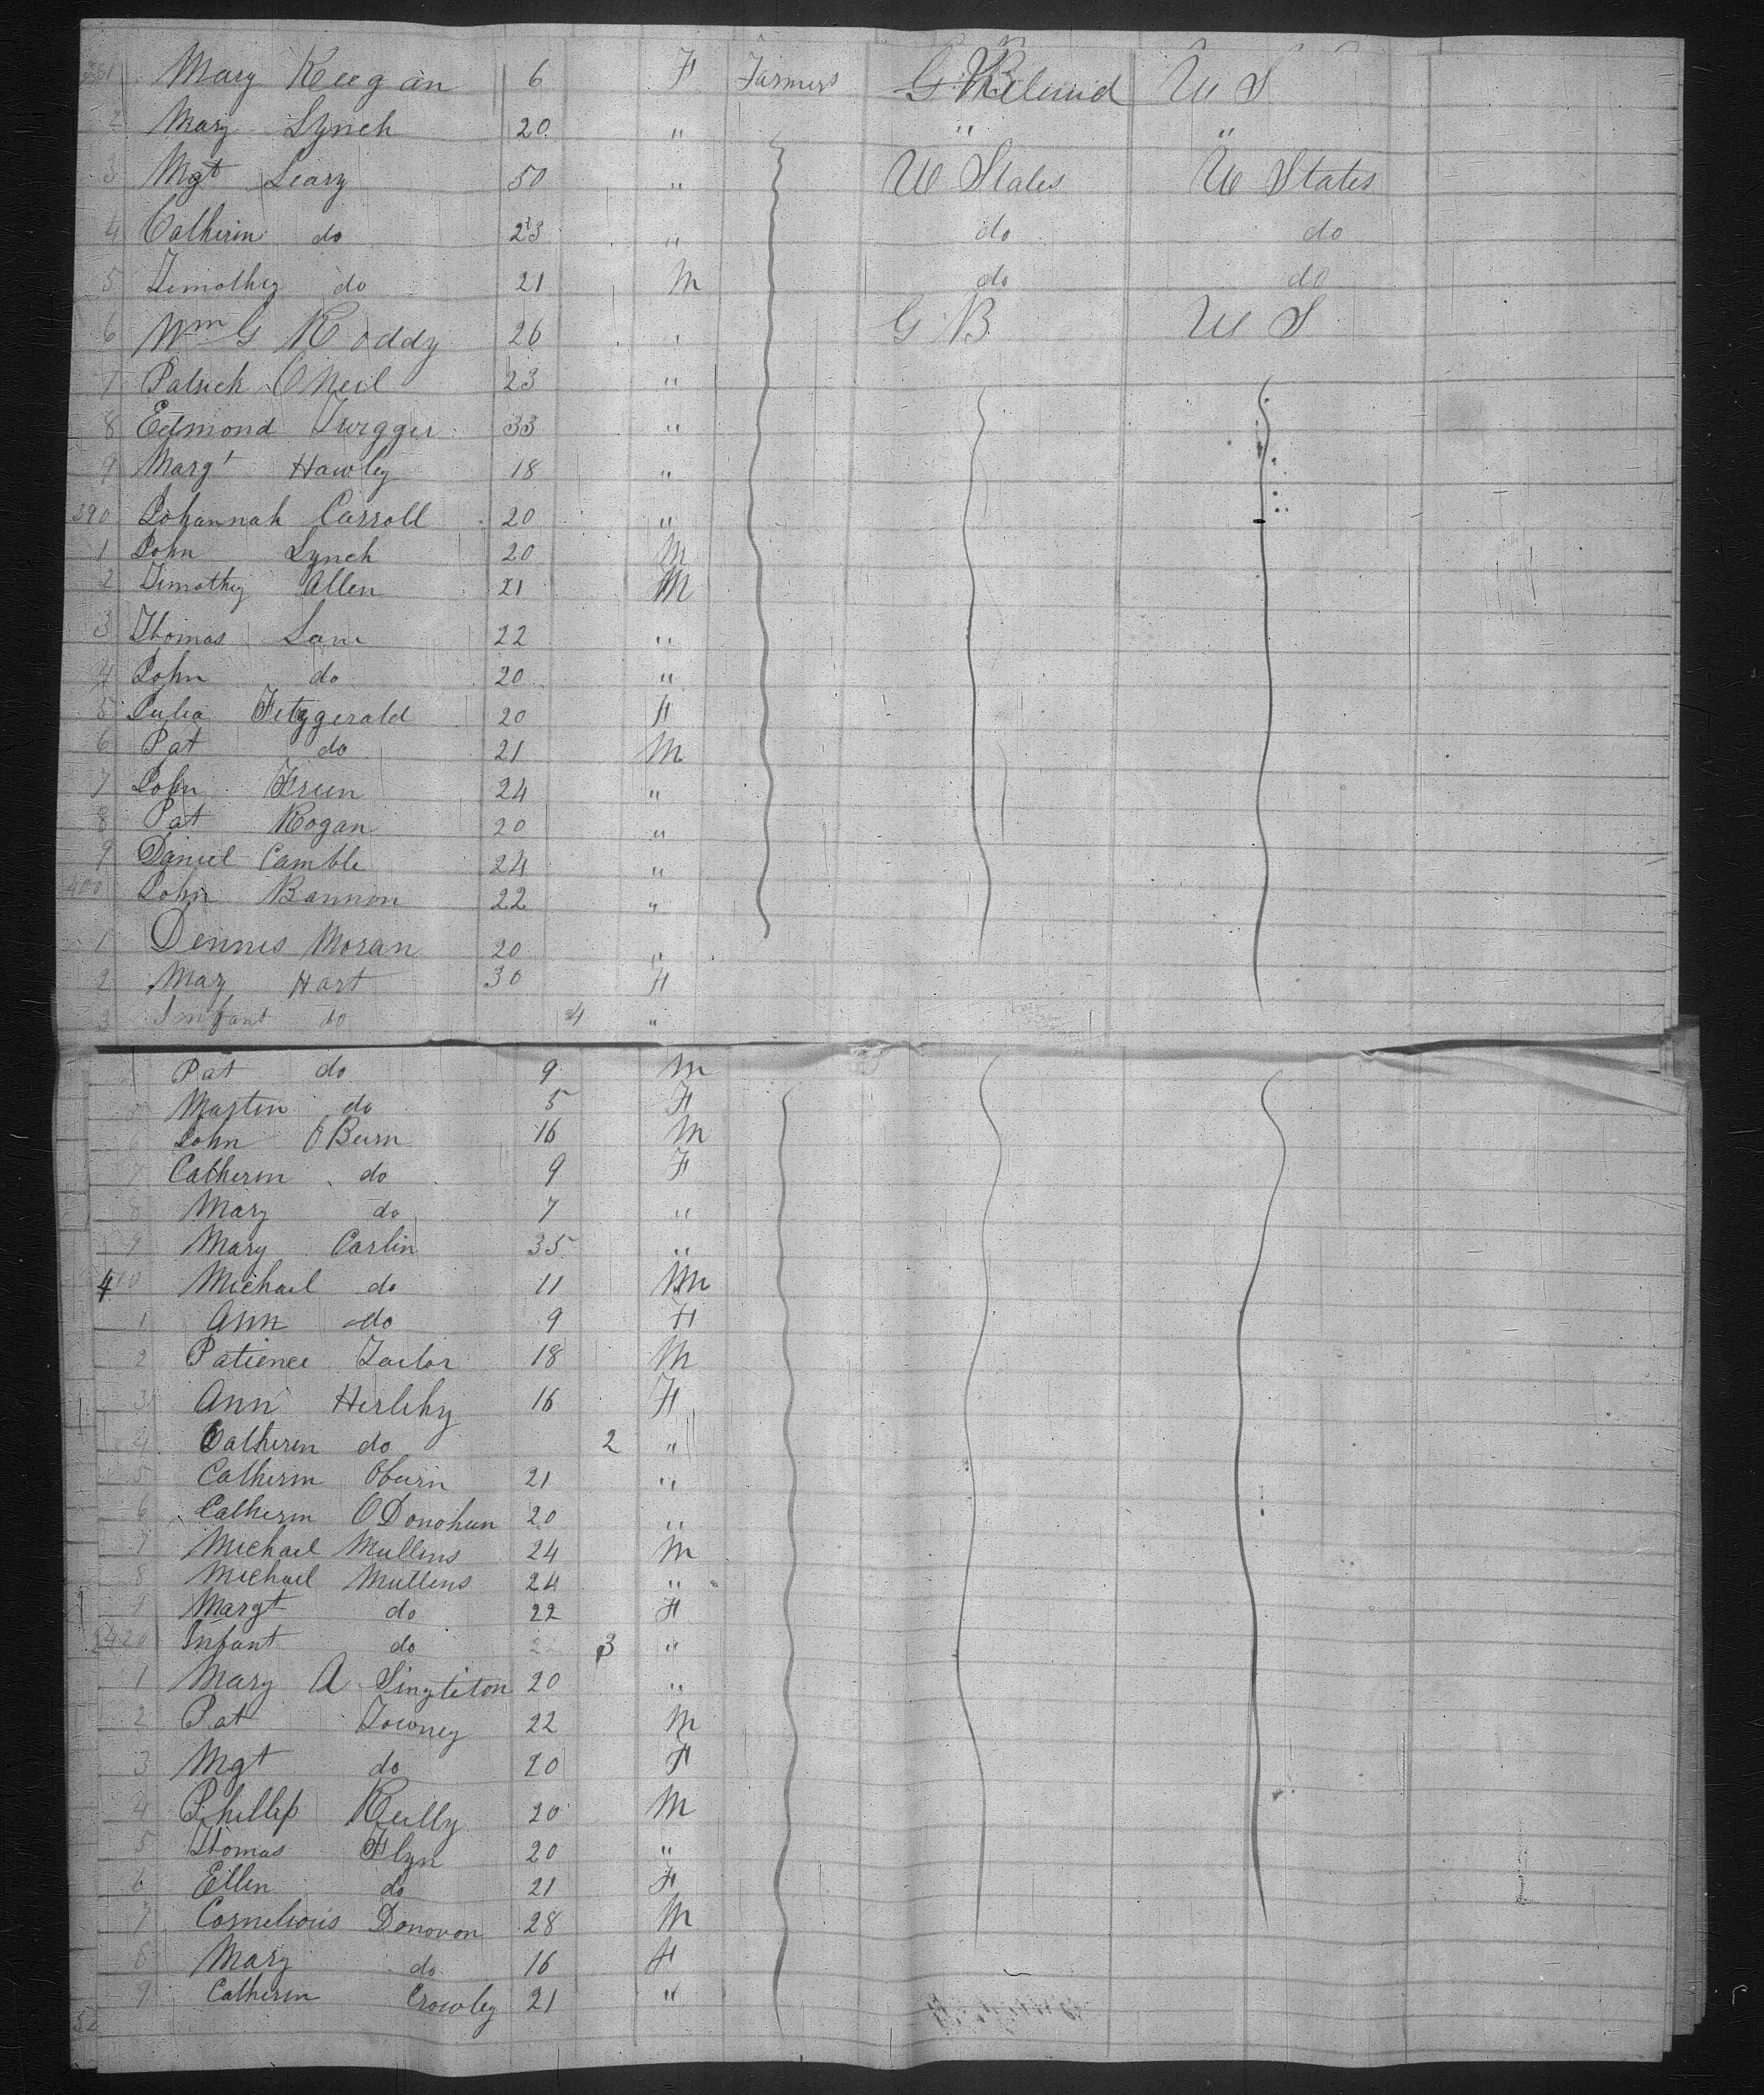 381 Mary Keegan 6 F Farmers G B Ireland U S
2 Mary Lynch 20 " " "
3 Mgt Leary 50 " U States U States
4 Catherin do 23 " do do
5 Timothy do 21 M do do
6 Wm G Roddy 26 " G B U S
7 Patrick O Neil 23 "
8 Edmond 33 "
9 Margt Hawley 18 "
390 Johannah Carroll 20 "
1 John Lynch 20 M
2 Timothy Allen 21 M
3 Thomas Lane 22 "
4 John do 20 "
5 Julia Fitzgerald 20 F
6 Pat do 21 M
7 John 24 "
8 Pat Rogan 20 "
9 Daniel Camble 24 "
400 John Bannon 22 "
1 Dennis Moran 20 "
2 Mary Hart 30 F
3 Infant do 4 "
Pat do 9 M
Martin do 5 F
6 John O Burn 16 M
7 Catherin do 9 F
8 Mary do 7 "
9 Mary Carlin 35 "
410 Michael do 11 M
1 Ann do 9 F
2 Patience Tailor 18 M
3 Ann Herlihy 16 F
4 Catheren do 2 "
5 Catherin Oburn 21 "
6 Catherin O Donohun 20 "
7 Michael Mullins 24 M
8 Michael Mullins 24 "
9 Margt do 22 F
420 Infant do 3 "
1 Mary A Singleton 20 "
2 Pat Towney 22 M
3 Mgt do 20 F
4 Phillip Reilly 20 M
5 Thomas Flyn 20 "
6 Ellen do 21 F
7 Cornelious Donovon 28 M
8 Mary do 16 F
9 Catherin Crowley 21 "